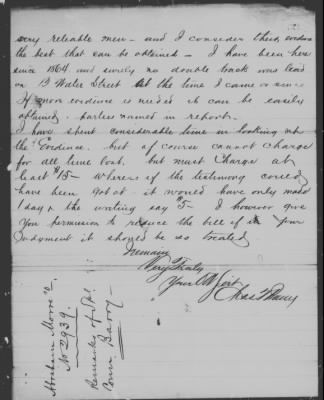 very reliable men - and I consider their evidence
the best that can be obtained - I have been here
since 1864 and surely no double track was laid
on B Water Street at the time I came or since
If more evidence is needed it can be easily
obtained - parties named in report -
I have spent considerable time in looking up
the "Evidence. but of course cannot Charge
for all time lost. but must Charge at
least $15 - where if the testimony could
have been got at - it would have only made
1 day & the writing say $5 - I however give
You permission to reduce the bill if in your
Judgment it should be so treated
I remain
Very Truly
Your Ob
Chas
Abraham Moore
No 2939.
Remarks of Spl
Comr Barry -